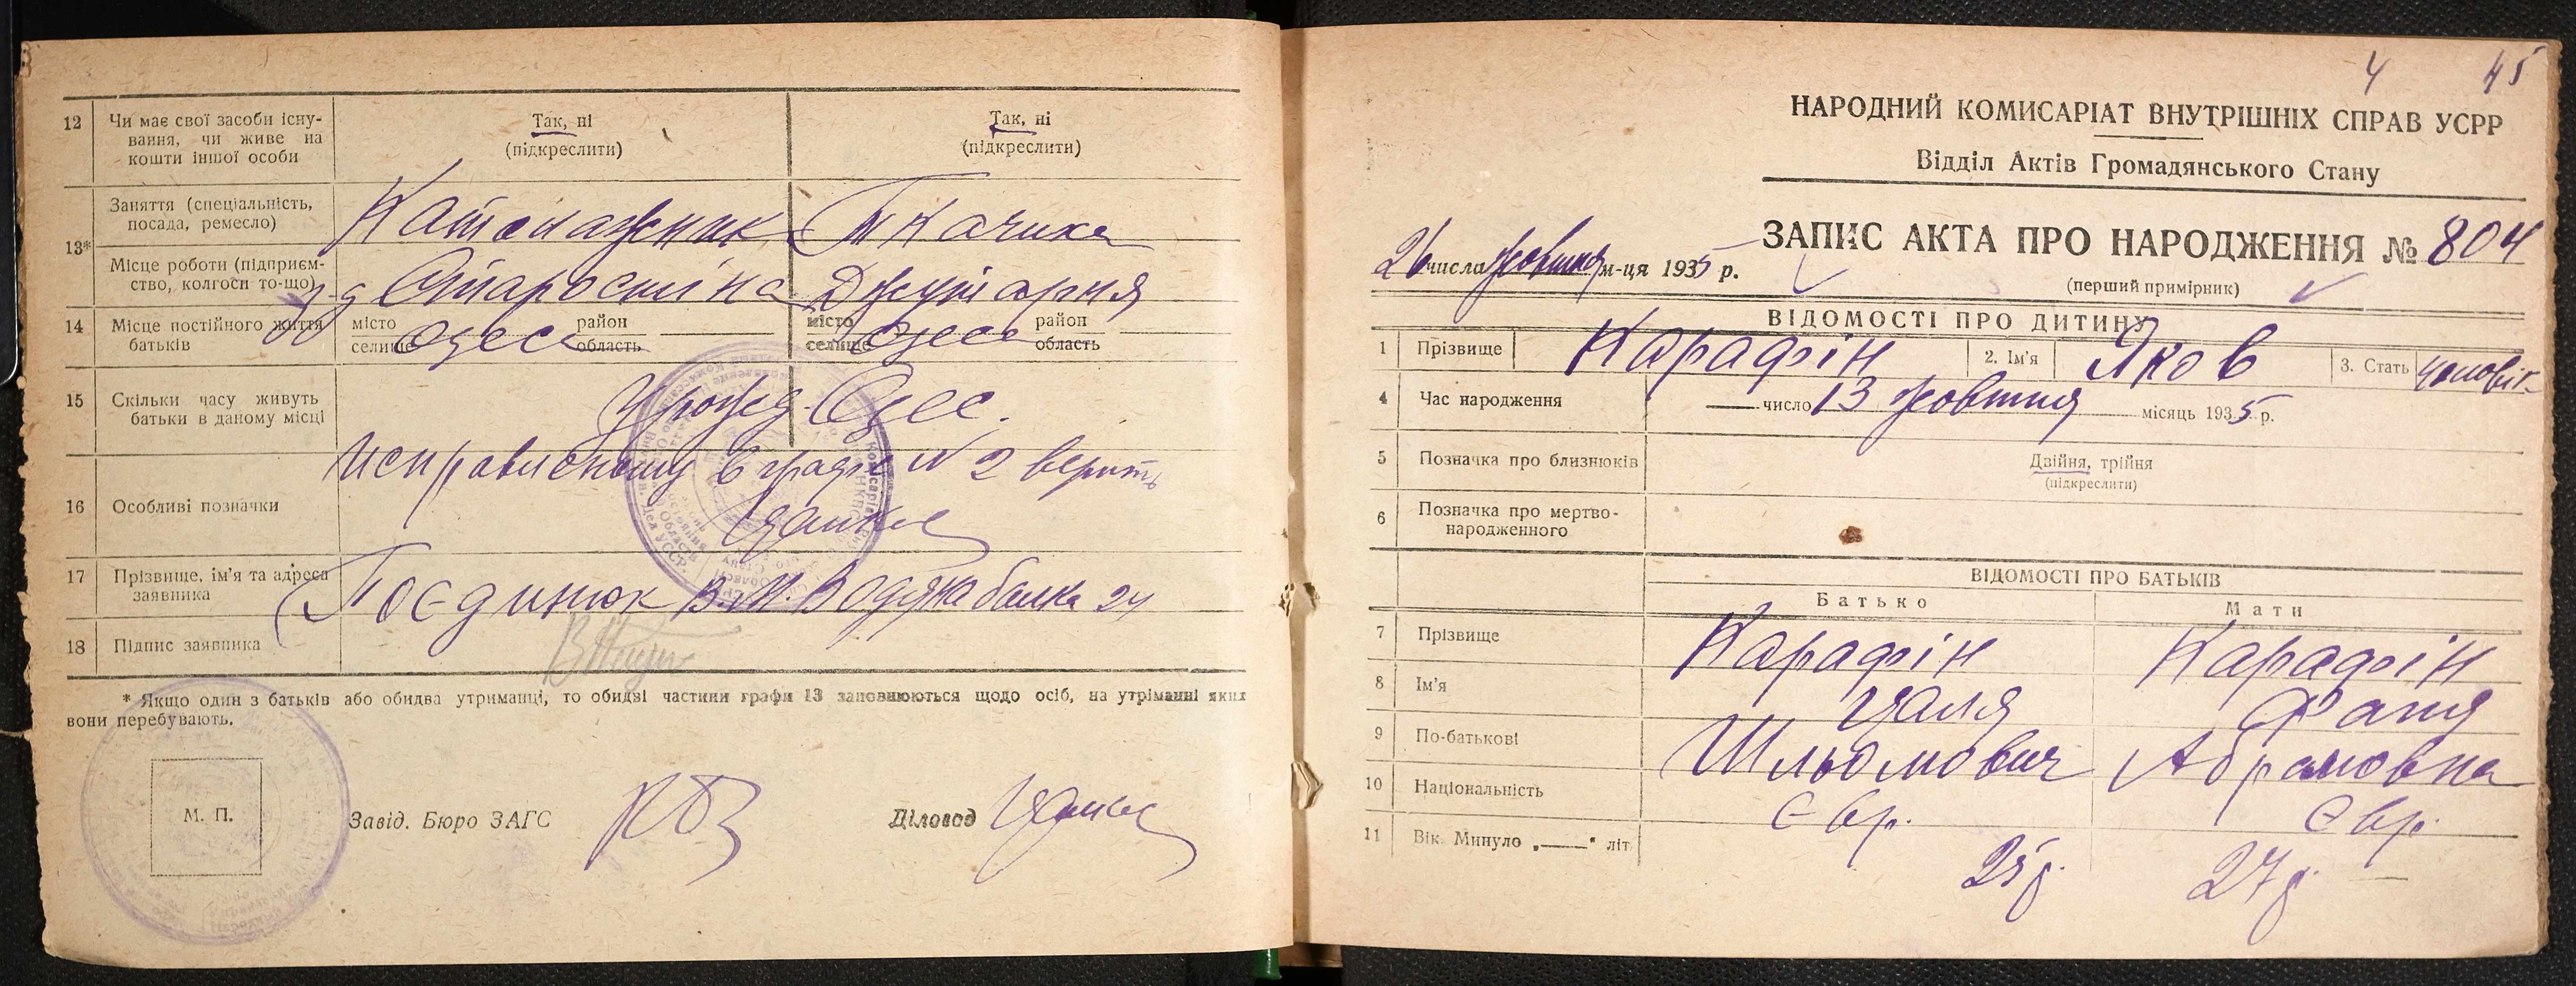 12 Чи має свої засоби існу-
вання, чи живе на
кошти іншої особи
Так, ні
(підкреслити)
Так, ні
(підкреслити)
13*
Заняття (спеціальність,
посада, ремесло)
Катонажник
Ткачиха
Місце роботи (підприєм-
ство, колгосп то-що)
з-д Старостіна
Джутарня
14 Місце постійного життя
батьків
місто
селище
Одеса
район
область
місто
селище
Одеса
район
область
15 Скільки часу живуть
батьки в даному місці
Урожд. Одес.
16 Особливі позначки
Исправленому в графе № 2 верить
17 Прізвище, ім'я та адреса
заявника
Поєдинюк В.М. Водяна балка 24
18 Підпис заявника
* Якщо один з батьків або обидва утриманці, то обидві частини графи 13 заповнюються щодо осіб, на утриманні яких
вони перебувають.
М. П.
Завід. Бюро ЗАГС
Діловод
4 45
НАРОДНИЙ КОМИСАРІАТ ВНУТРІШНІХ СПРАВ УСРР
Відділ Актів Громадянського Стану
ЗАПИС АКТА ПРО НАРОДЖЕННЯ № 804
26 числа жовтня м-ця 1935 р.
(перший примірник)
ВІДОМОСТІ ПРО ДИТИНУ
1 Прізвище Карафін 2. Ім'я Яков 3. Стать чоловік
4 Час народження число 13 жовтня місяць 1935 р.
5 Позначка про близнюків
Двійня, трійня
(підкреслити)
6 Позначка про мертво-
народженного
ВІДОМОСТІ ПРО БАТЬКІВ
Батько Мати
7 Прізвище Карафін Карафін
8 Ім'я Цаля Фаня
9 По-батькові Шльомович Абрамовна
10 Національність Євр. Євр.
11 Вік. Минуло „——" літ 25 р. 27 р.